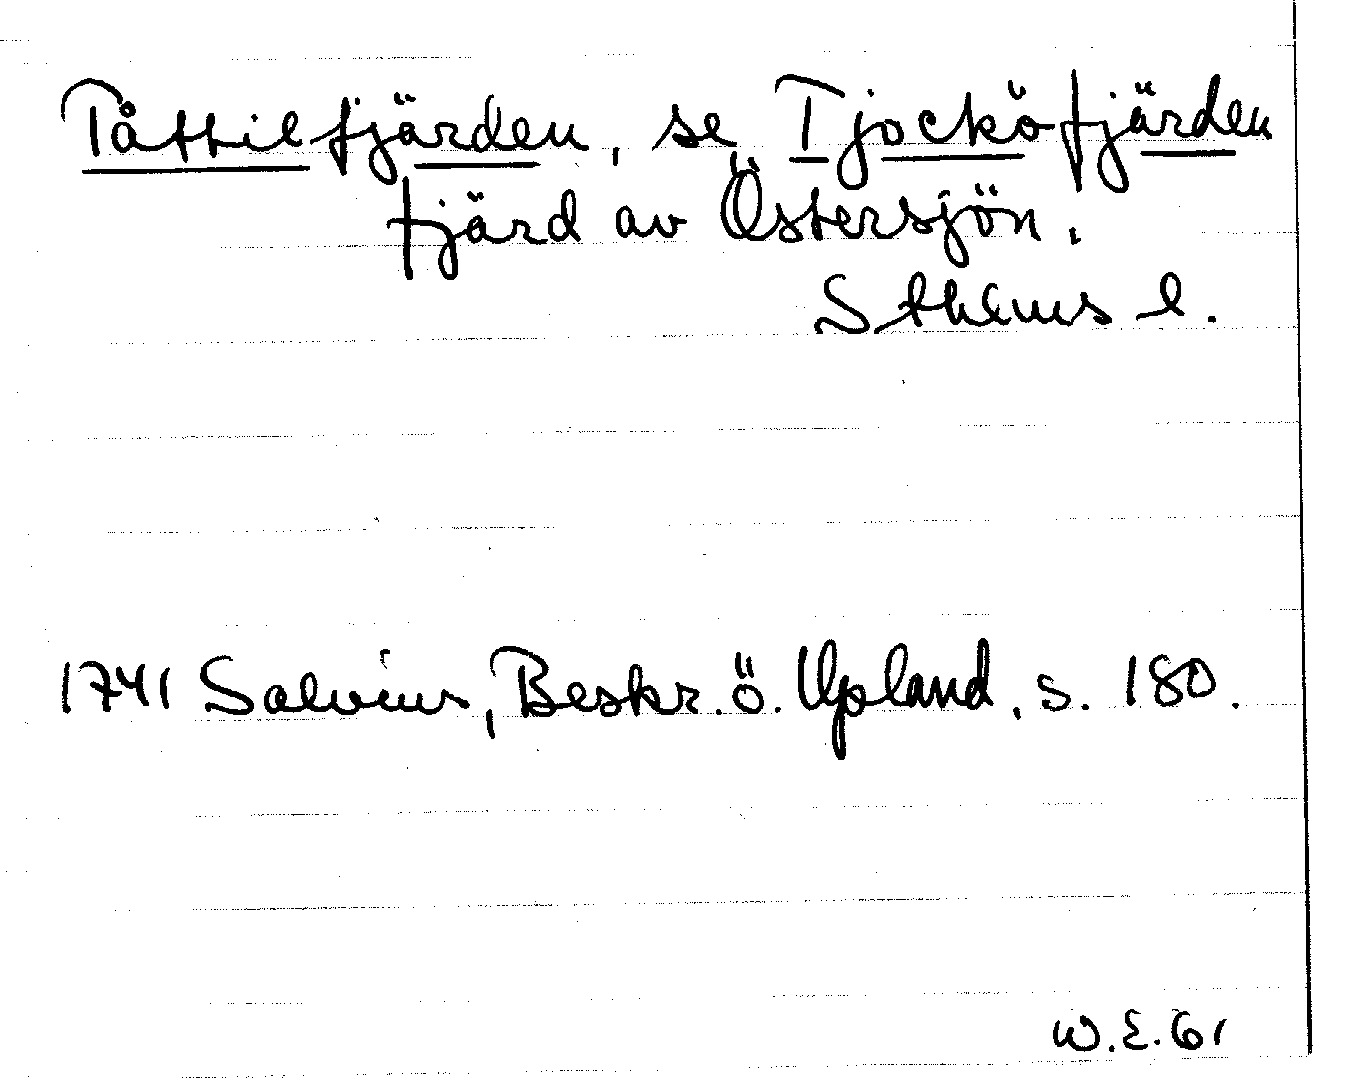 Tåttilfjärden, se Tjocköfjärden
fjärd av Östersjön.
Sthlms l.
1741 Salvius, Beskr. ö. Upland, s. 180.
W.E. 61